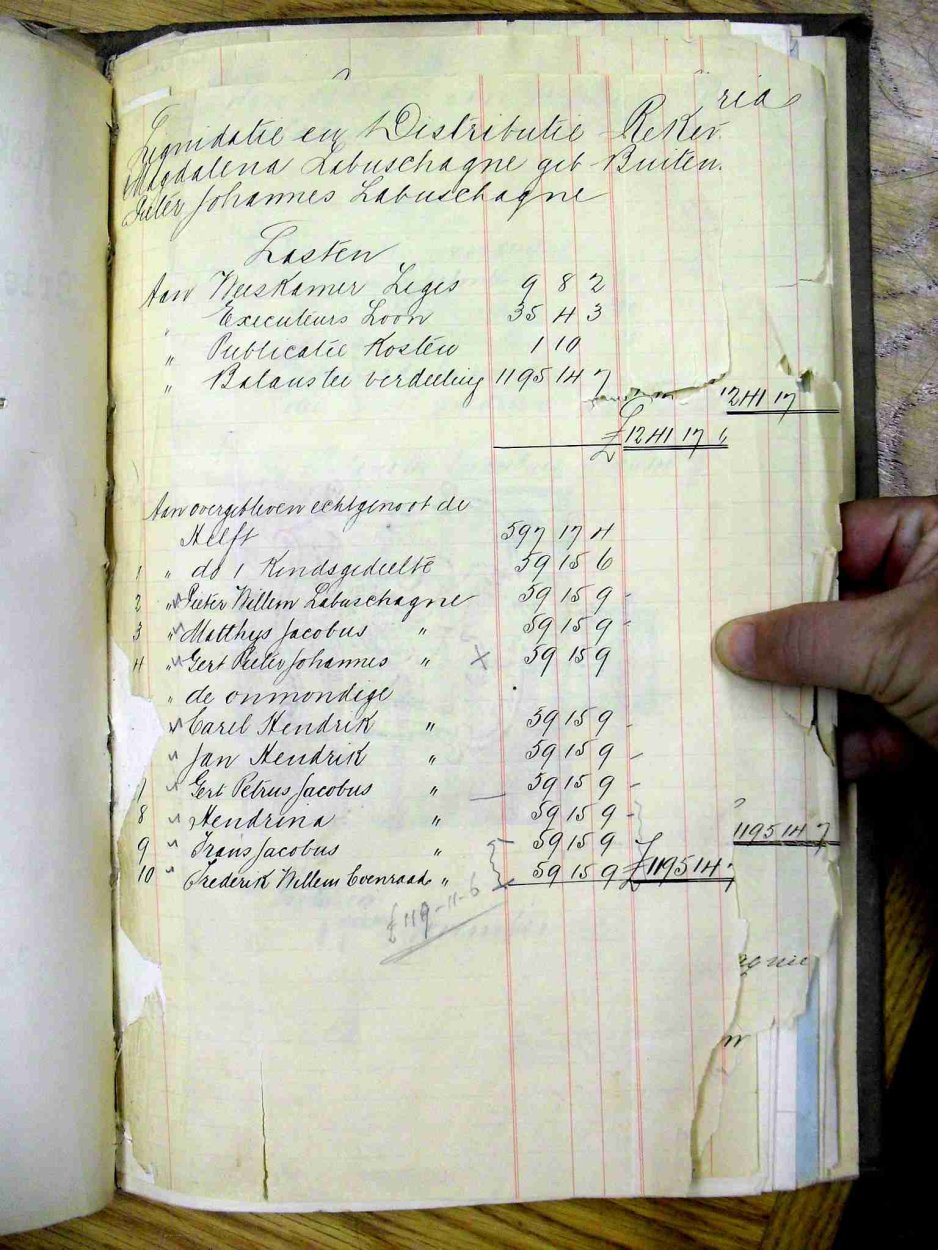 ria
Liquidatie en Distributie Reken
Magdalena Labuschagne geb Buiten.
Pieter Johannes Labuschagne
Lasten
Aan Weeskamer Leges 9 8 2
" Executeurs Loon 35 4 3
" Publicatie Kosten 1 10
" Balans ter verdeeling 1195 14 7
1241 17
£ 1241 17 6
Aan overgebleven echtgenoot de
Helft 597 17 4
1 " do 1 Kindsgedeelte 59 15 6
2 " Pieter Willem Labuschagne 59 15 9
3 " Matthys Jacobus " 59 15 9
4 " Gert Pieter Johannes " X 59 15 9
" de onmondige
Carel Hendrik " 59 15 9
Jan Hendrik " 59 15 9
7 Gert Petrus Jacobus " 59 15 9
8 Hendrina " 59 15 9
1195 14 7
9 Frans Jacobus " 59 15 9
10 Frederik Willem Coenraad " 59 15 9 £1195 14
£119-11-6